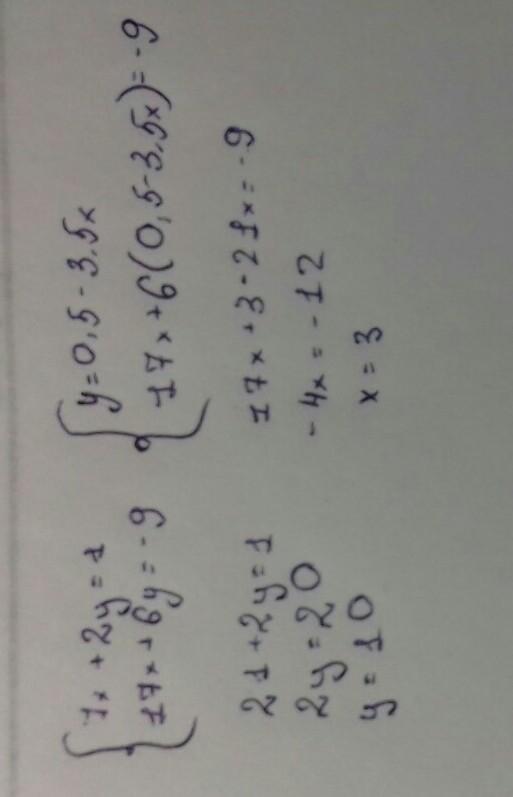 7x + 2y = 1
17x + 6y = -9
y = 0,5 - 3,5x
17x + 6(0,5 - 3,5x) = -9
17x + 3 - 21x = -9
-4x = -12
x = 3
21 + 2y = 1
2y = 20
y = 10